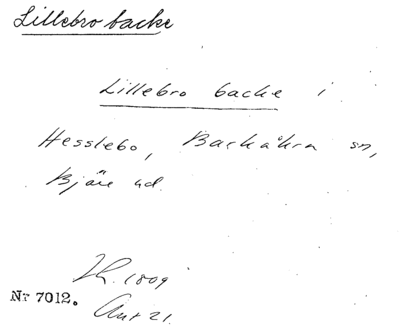 Lillebro backe
Lillebro backe i
Hesslebo, Barkåkra sn,
Bjäre hd.
Th. 1809
Nr 7012.
Ant 21